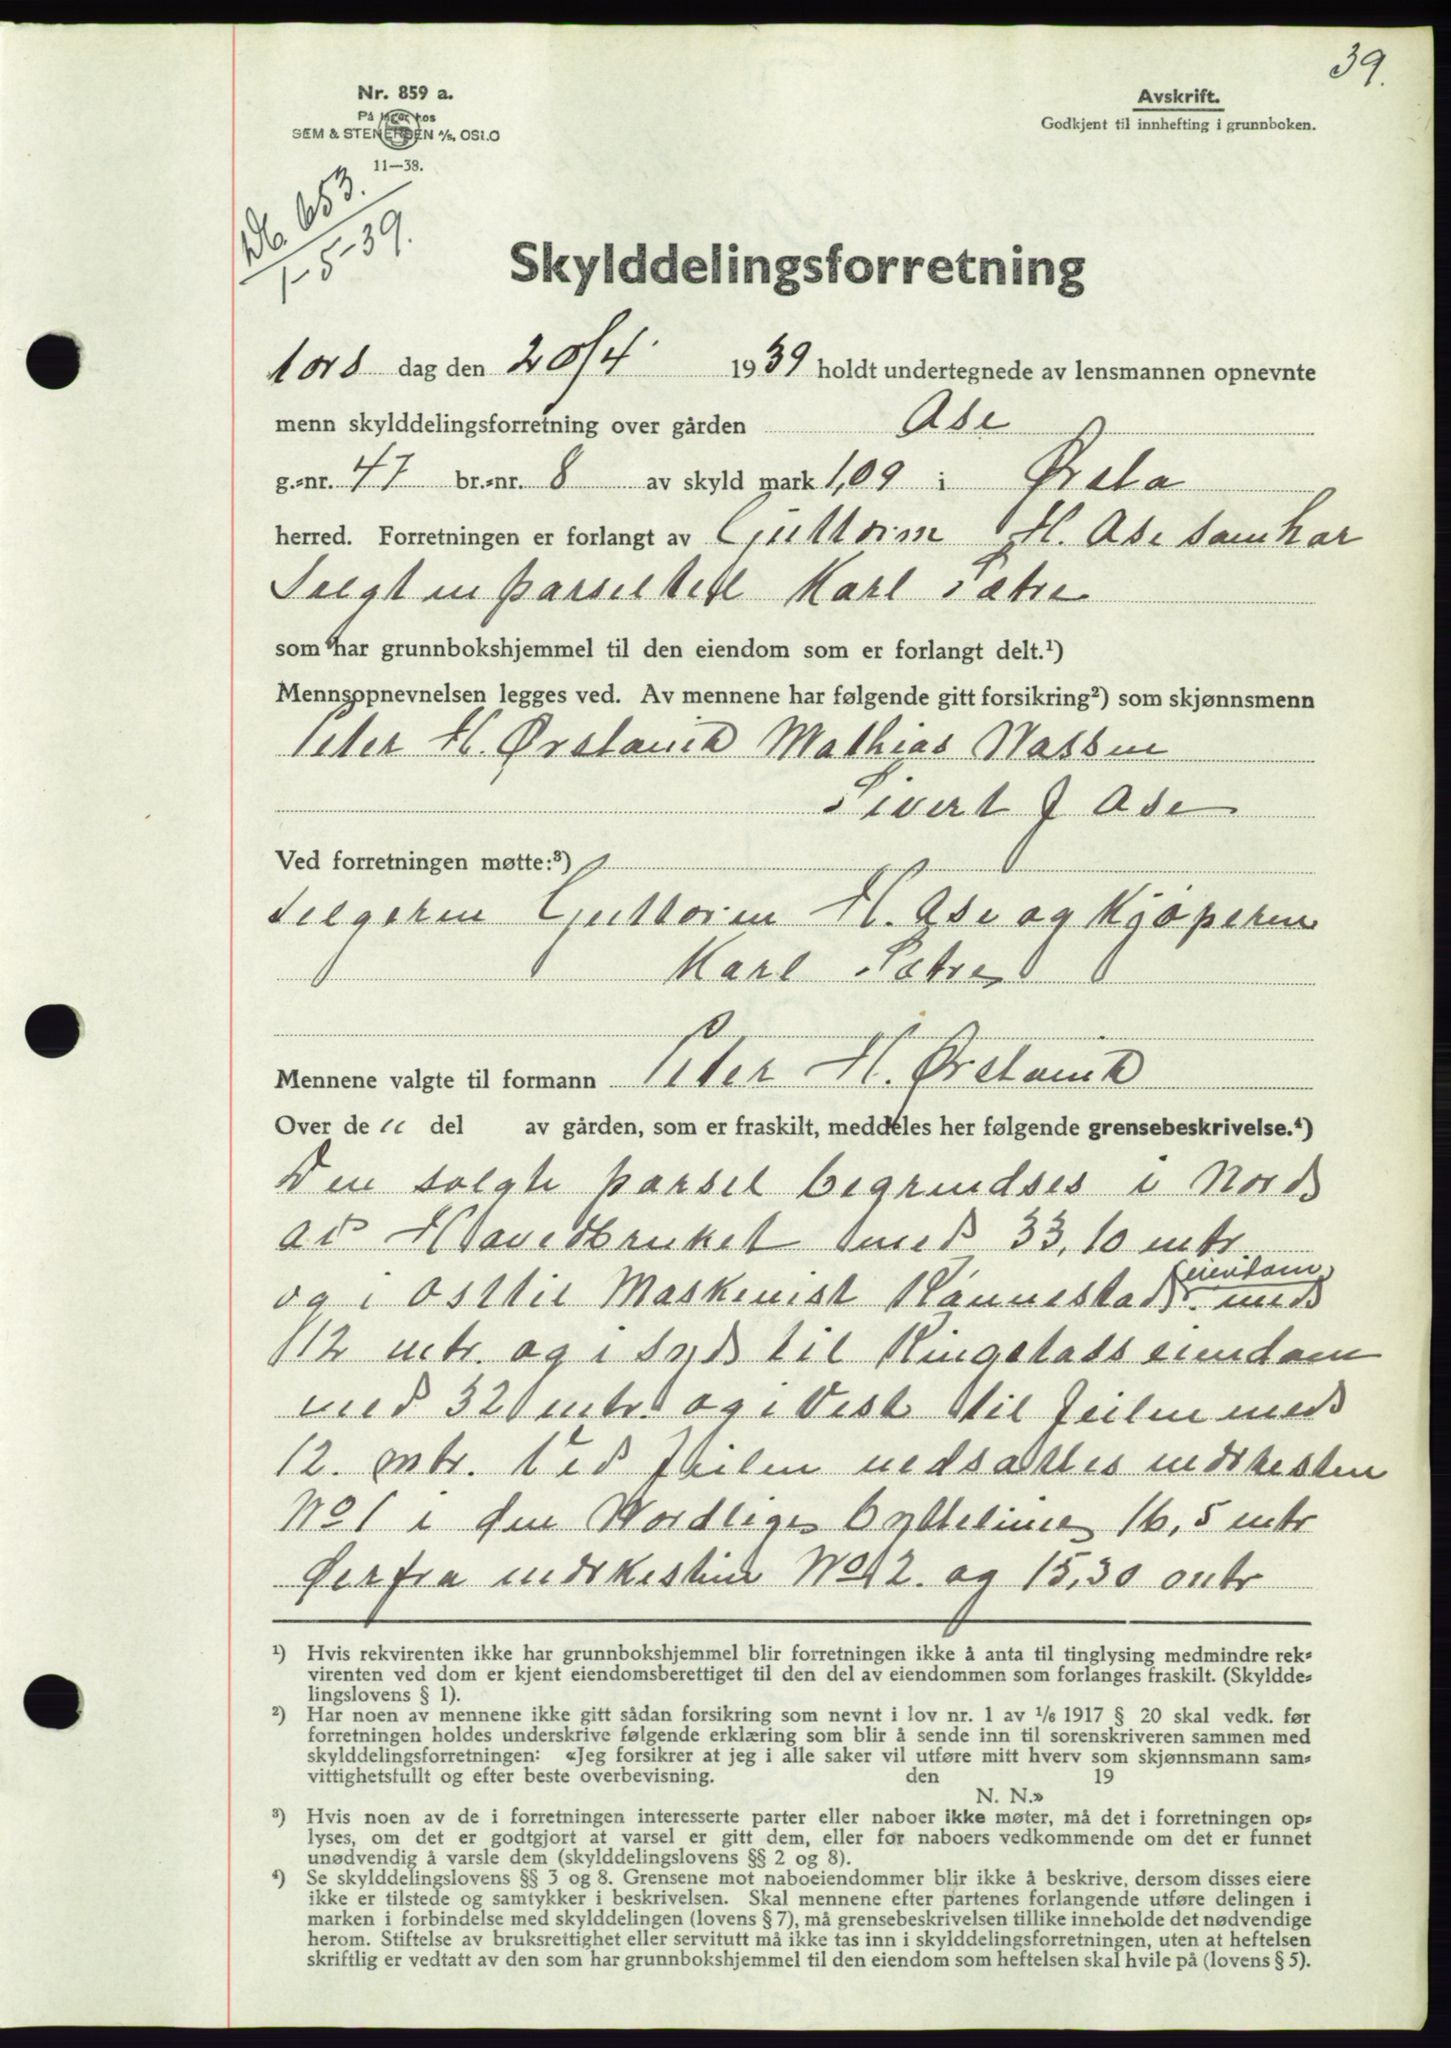 39.
Nr. 859 a.
På lager hos
SEM & STENERSEN A/S, OSLO
11—38.
Avskrift.
Godkjent til innhefting i grunnboken.
Db. 653.
1-5-39.
Skylddelingsforretning
tors dag den 20/4 1939 holdt undertegnede av lensmannen opnevnte
menn skylddelingsforretning over gården Åse
g.-nr. 47 br.-nr. 8 av skyld mark 1,09 i Ørsta
herred. Forretningen er forlangt av Guttorm H. Åse som har
Selgt en parsel til Karl Sætre
som har grunnbokshjemmel til den eiendom som er forlangt delt.¹)
Mennsopnevnelsen legges ved. Av mennene har følgende gitt forsikring²) som skjønnsmenn
Peter H. Ørstavik Mathias Nassen
Sivert J Åse
Ved forretningen møtte:³)
Selgeren Guttorm H. Åse og Kjøperen
Karl Sætre
Mennene valgte til formann Peter H. Ørstavik
Over de " del av gården, som er fraskilt, meddeles her følgende grensebeskrivelse.⁴)
Den solgte parsel begrendses i Nord
av Havebruket med 33,10 mtr.
og i øst til Maskinist Rånnestads eiendom med
12 mtr. og i syd til Ringstads eiendom
med 32 mtr. og i Vest til Jeilen med
12. mtr. Ved Jeilen nedsattes merkesten
No 1 i den Nordlige byttelinie 16,5 mtr
derfra merkestein No 2. og 15,30 mtr
¹) Hvis rekvirenten ikke har grunnbokshjemmel blir forretningen ikke å anta til tinglysing medmindre rek-
virenten ved dom er kjent eiendomsberettiget til den del av eiendommen som forlanges fraskilt. (Skyldde-
lingslovens § 1).
²) Har noen av mennene ikke gitt sådan forsikring som nevnt i lov nr. 1 av 1/6 1917 § 20 skal vedk. før
forretningen holdes underskrive følgende erklæring som blir å sende inn til sorenskriveren sammen med
skylddelingsforretningen: «Jeg forsikrer at jeg i alle saker vil utføre mitt hverv som skjønnsmann sam-
vittighetsfullt og efter beste overbevisning. den 19
N. N.»
³) Hvis noen av de i forretningen interesserte parter eller naboer ikke møter, må det i forretningen op-
lyses, om det er godtgjort at varsel er gitt dem, eller for naboers vedkommende om det er funnet
unødvendig å varsle dem (skylddelingslovens §§ 2 og 8).
⁴) Se skylddelingslovens §§ 3 og 8. Grensene mot naboeiendommer blir ikke å beskrive, dersom disses eiere
ikke er tilstede og samtykker i beskrivelsen. Skal mennene efter partenes forlangende utføre delingen i
marken i forbindelse med skylddelingen (lovens § 7), må grensebeskrivelsen tillike inneholde det nødvendige
herom. Stiftelse av bruksrettighet eller servitutt må ikke tas inn i skylddelingsforretningen, uten at heftelsen
skriftlig er vedtatt av den som har grunnbokshjemmel til den eiendom som heftelsen skal hvile på (lovens § 5).